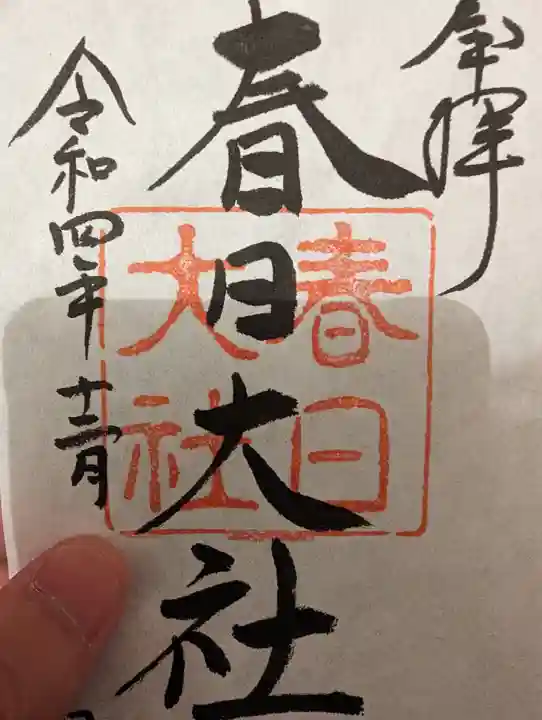 奉拝
春日大社
春日大社
令和四年十二月